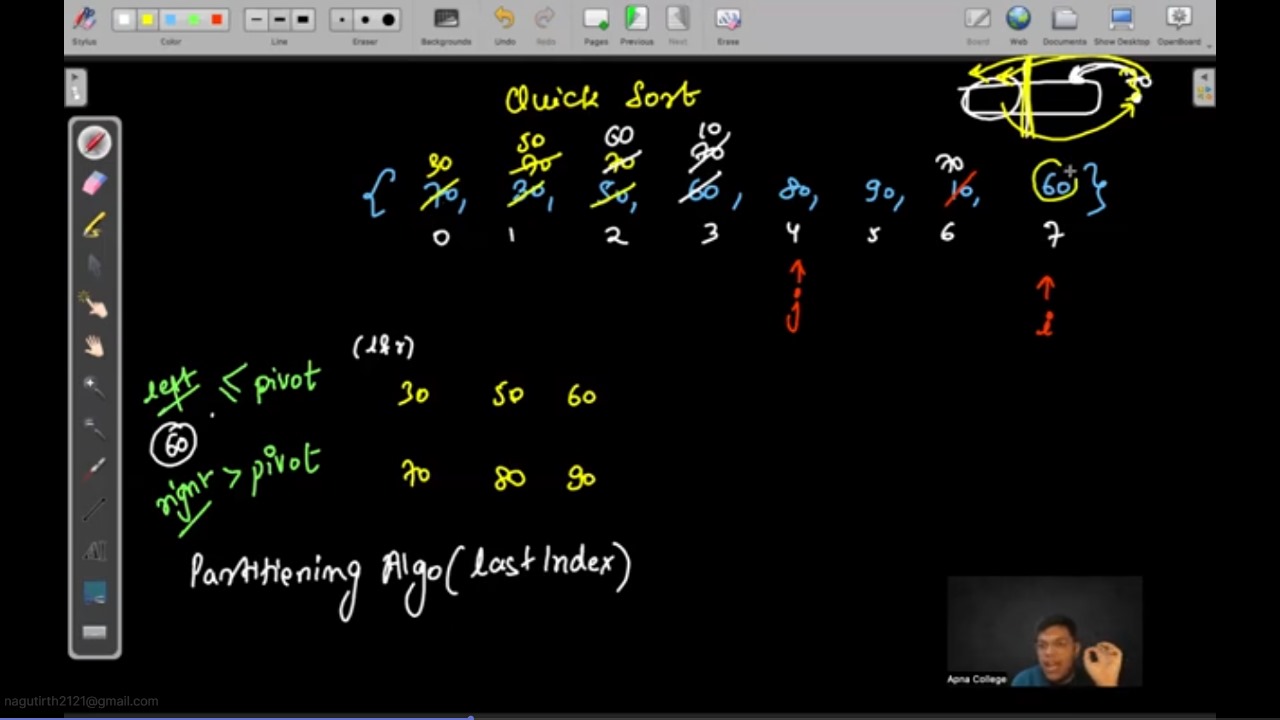 Stylus Color Line Eraser Backgrounds Undo Redo Pages Previous Next Erase Board Web Documents Show Desktop OpenBoard
Quick Sort
50 60 10
30 70 70 70 70
{ 70, 30, 50, 60, 80, 90, 10, 60 }
0 1 2 3 4 5 6 7
j i
left ≤ pivot 30 50 60
60
right > pivot 70 80 90
Partitiening Algo(last Index)
Apna College
nagutirth2121@gmail.com